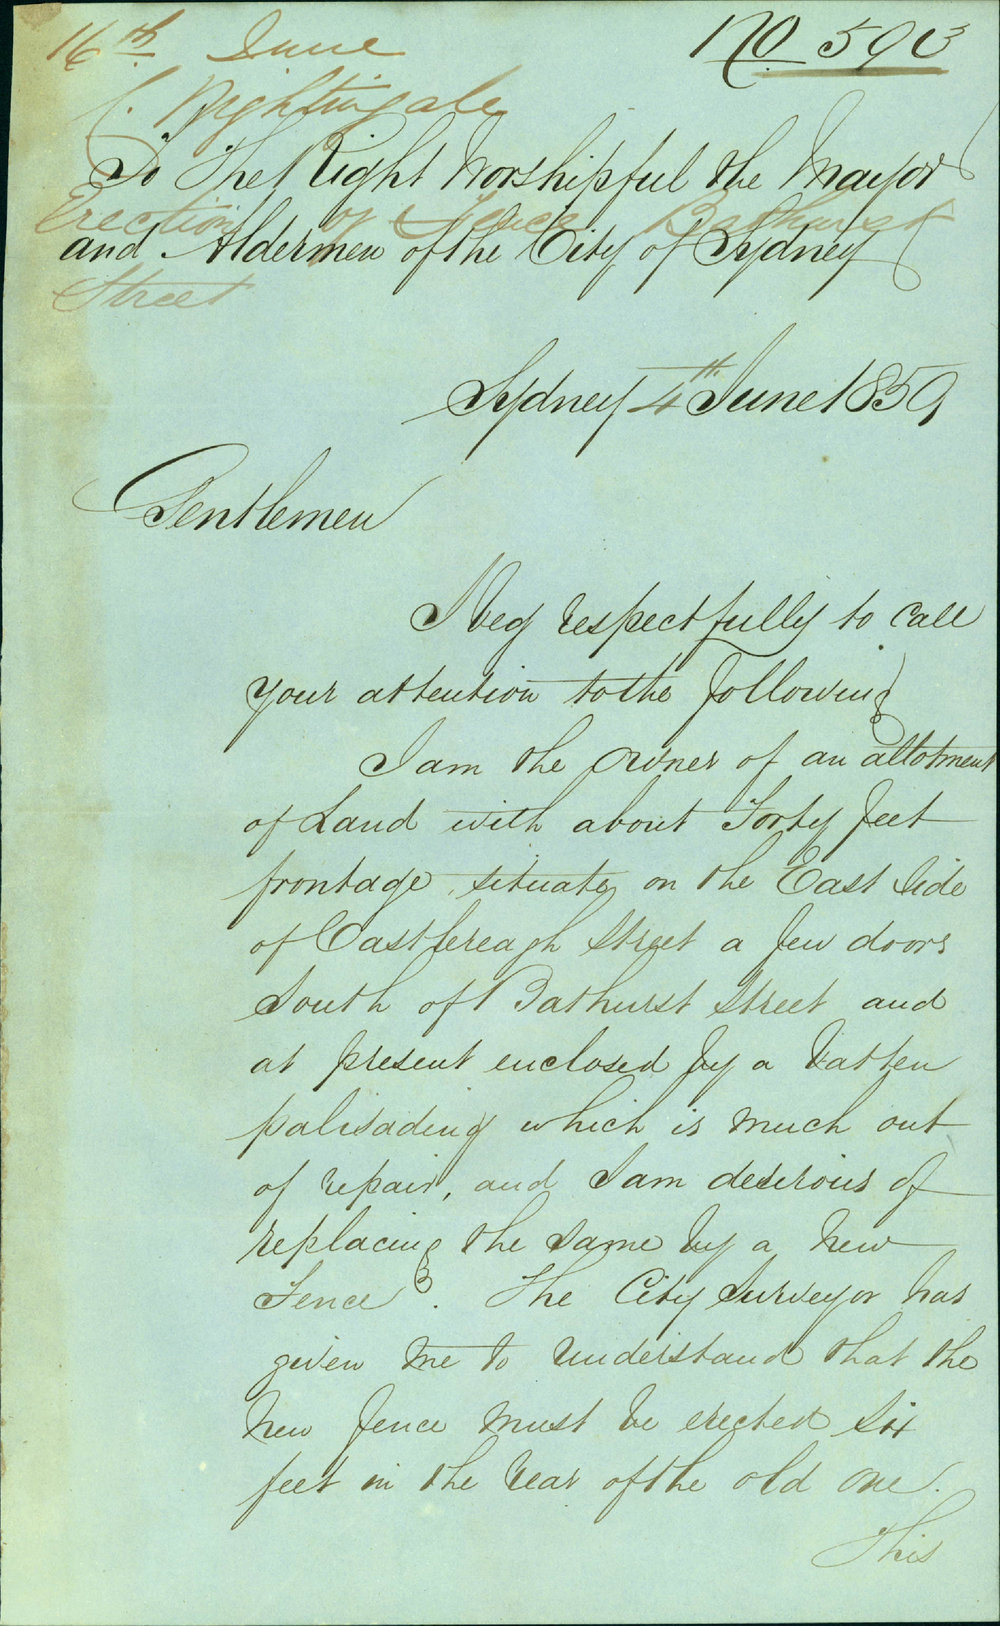 16th June
No 590
C. Nightingale
To The Right Worshipful the Mayor
Erection of Fence Bathurst
and Aldermen of the City of Sydney
Street
Sydney 4th June 1859
Gentlemen
I beg respectfully to call
your attention to the following
I am the owner of an allotment
of Land with about Forty feet
frontage, situate on the East Side
of Castlereagh Street a few doors
South of Bathurst Street and
at present enclosed by a batten
palisading which is much out
of repair, and I am desirous of
replacing the same by a new
Fence. The City Surveyor has
given me to understand that the
new fence must be erected six
feet in the rear of the old one.
This